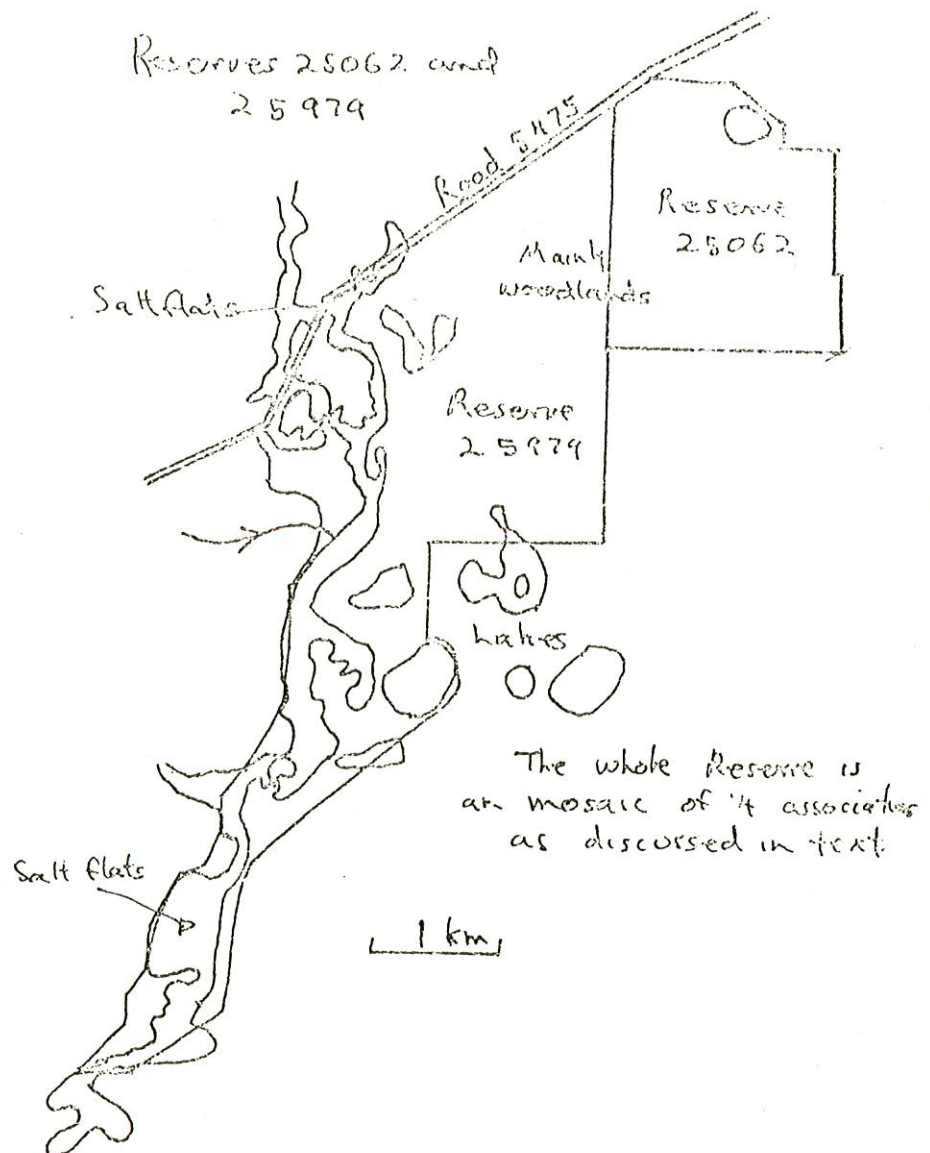 Reserves 25062 and
25979
Road 5475
Reserve
25062
Mainly
woodlands
Salt flats
Reserve
25979
Lakes
The whole Reserve is
an mosaic of 4 associations
as discussed in text
Salt flats
1 km